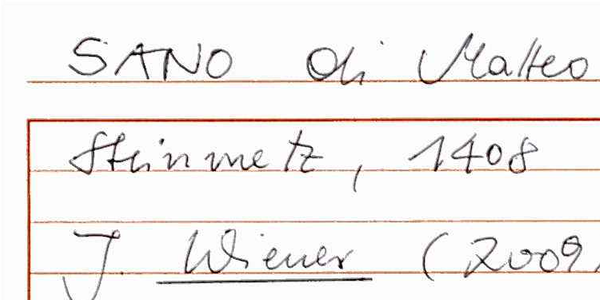 SANO di Matteo
Steinmetz, 1408
J. Wiener (2009